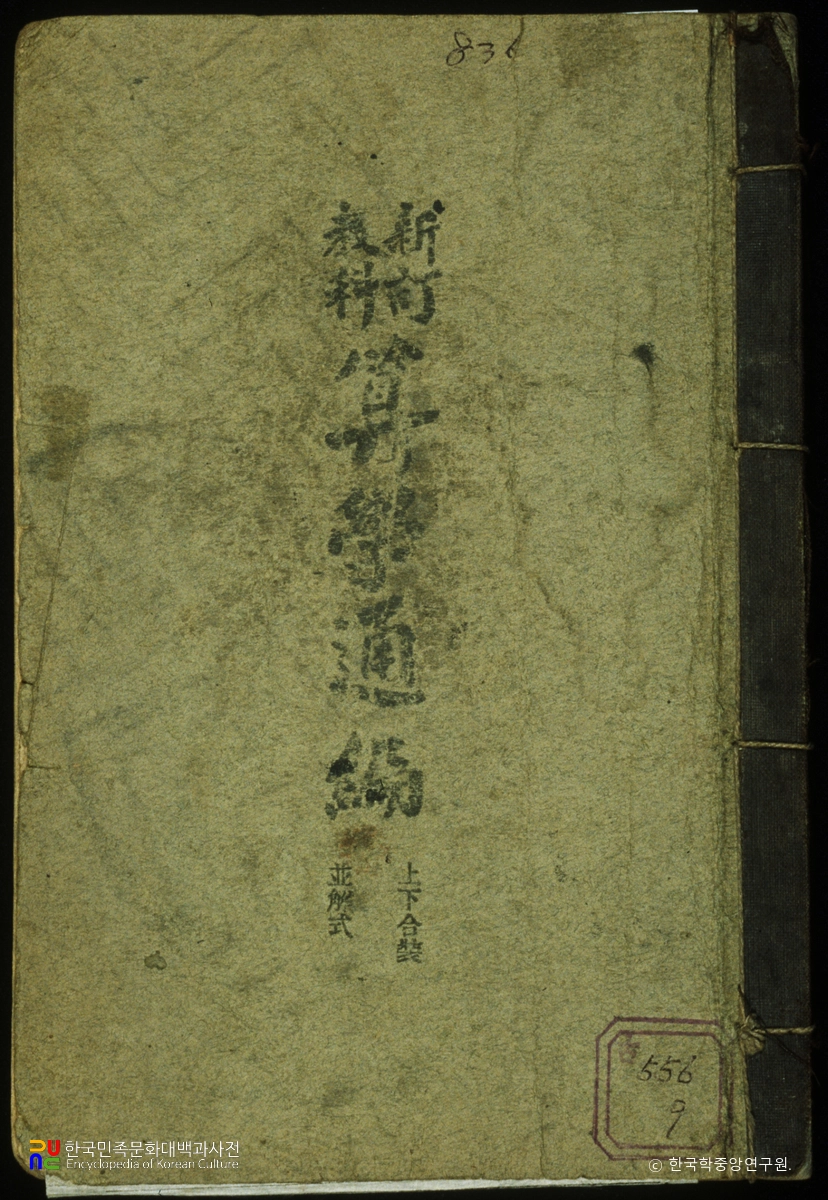 836
新訂
教科
算學通編
上下合裝
並解式
556
9
한국민족문화대백과사전
Encyclopedia of Korean Culture
© 한국학중앙연구원.